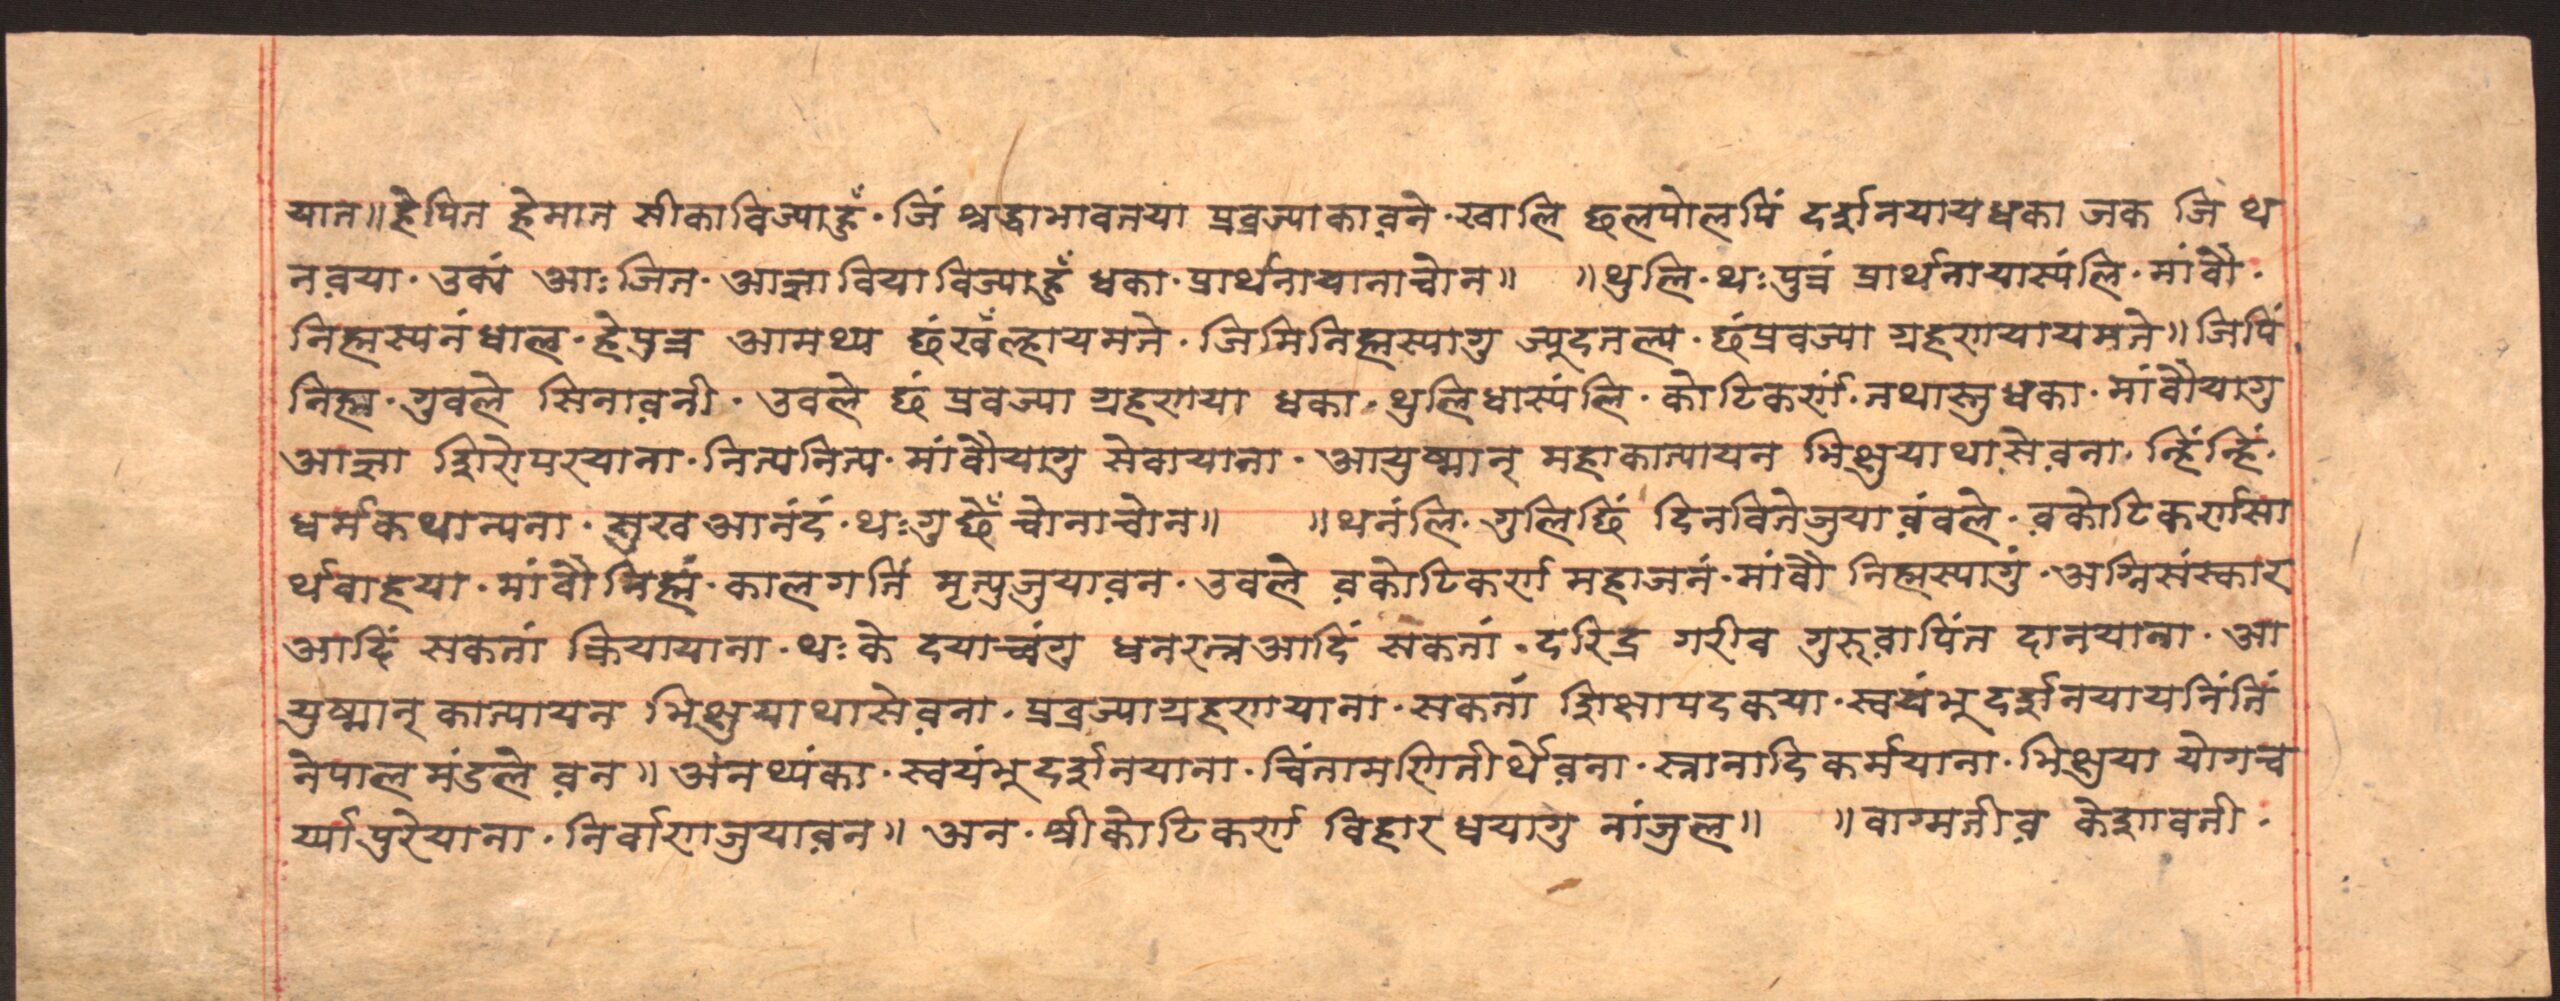 यात॥हेपित हेमात सीकाविज्याहुँ· जिं श्रद्धाभावनया प्रव्रज्याकाव़ने·खालि छलपोलपिं दर्शनयायधका जक जि थ
नव़या· उकिं आः जित· आज्ञाविया विज्याहुँ धका· प्रार्थनायानाचोन॥ ॥थुलि·थःपुत्रं प्रार्थनायास्यंलि·मांवौ·
निह्मस्यनंधाल·हेपुत्र आमथ्य छंखँल्हायमते· जिमिनिह्मस्यागु ज्यूदतल्य·छंप्रवज्या ग्रहणयायमते॥जिपिं
निह्म·गुवले सिनाव़नी· उवले छं प्रवज्या ग्रहणया धका·थुलिधास्यंलि·कोटिकर्णं·तथास्तुधका·मांवौयागु
आज्ञा शिरोपरयाना·नित्यनित्य·मांवौयागु सेवायाना· आयुष्मान् महाकात्यायन भिक्षुयाथासेव़ना·न्हिंन्हिं·
धर्मकथान्यना· सुखआनंदं·थःगुछेँ चोनाचोन॥ ॥थनंलि·गुलिछिं दिनवितेजुयाव़ंवले·व़कोटिकर्णसा
र्थवाहया·मांवौनिह्मं·कालगतिं मृत्युजुयाव़न·उवले व़कोटिकर्ण महाजनं·मांवौ निह्मस्यागुं·अग्निसंस्कार
आदिं सकतां क्रियायाना·थःके दयाच्वंगु धनरत्नआदिं सकतां·दरिद्र गरीव गुरुव़ापिंत दानयाना·आ
युष्मान् कात्यायन भिक्षुयाथासेव़ना·प्रव्रज्याग्रहणयाना·सकतां शिक्षापदकया·स्वयंभूदर्शनयायनिंतिं
नेपालमंडले व़न॥ अंनथ्यंका·स्वयंभूदर्शनयाना·चिंतामणितीर्थेव़ना·स्नानादिकर्मयाना·भिक्षुया योगच
र्य्यापुरेयाना·निर्वाणजुयाव़न॥ अन·श्रीकोटिकर्ण विहारधयागु नांजुल॥ ॥वाग्मतीव़ केशावती·